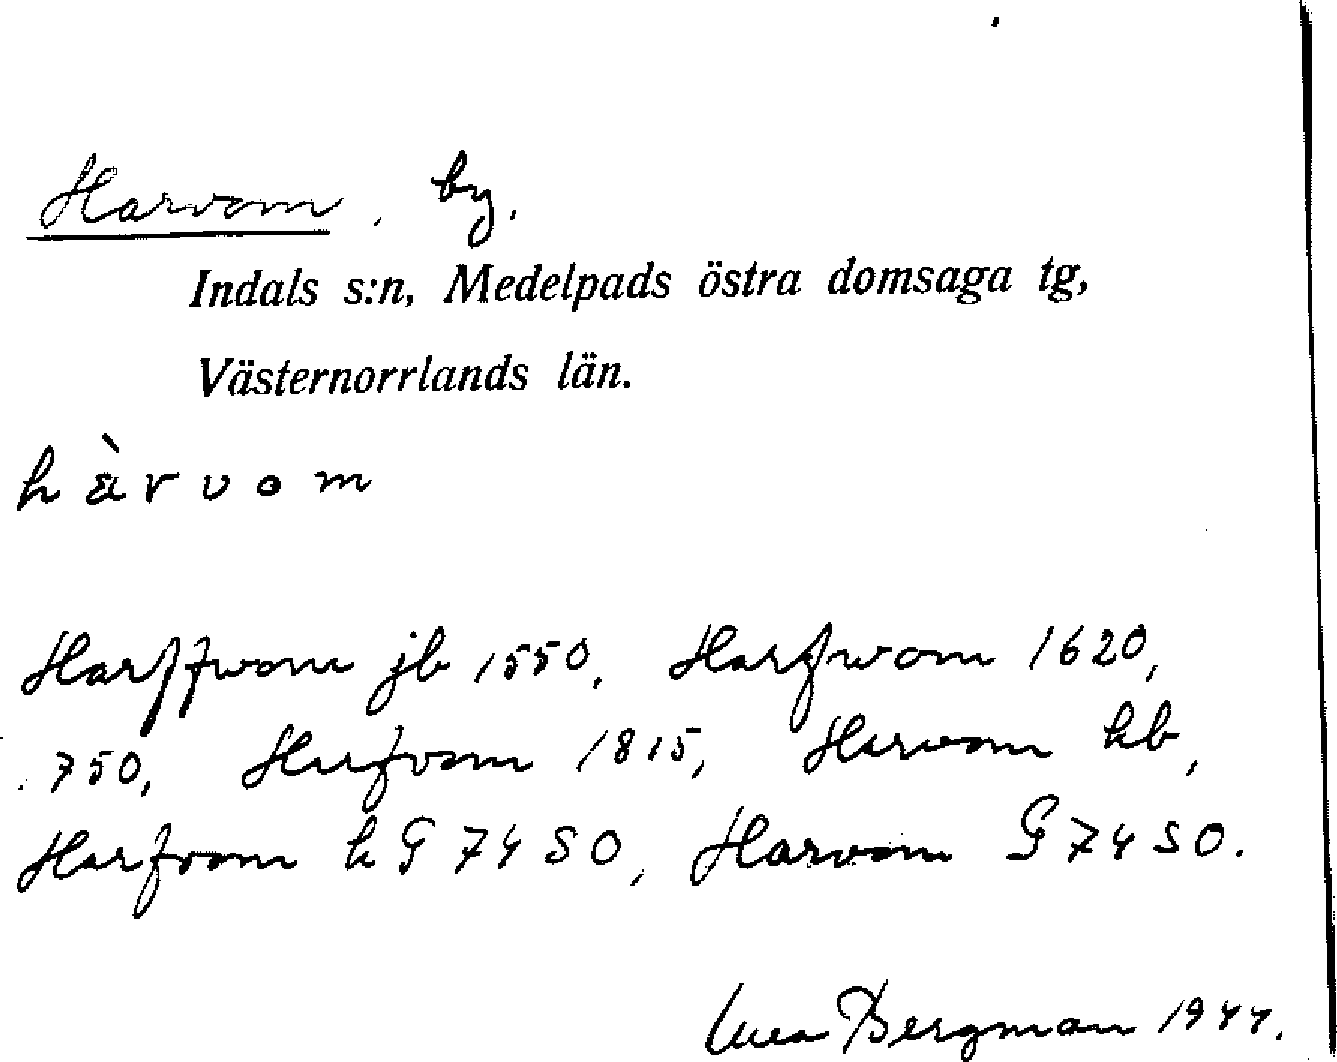 Harvom, by.
Indals s:n, Medelpads östra domsaga tg,
Västernorrlands län.
hàrvom
Harffwom jb 1550, Harfwom 1620,
750, Harfvom 1815, Harvom hb,
Harfvom hG 74 SO, Harvom G 74 SO.
Bergman 1944.